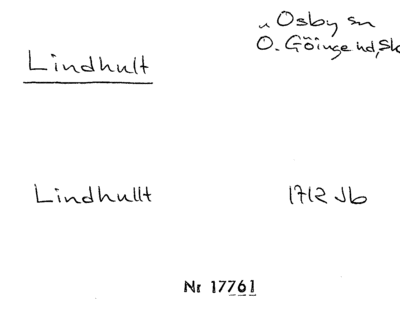 n Osby sn
Ö. Göinge hd, Sk
Lindhult
Lindhullt 1712 Jb
Nr 17761